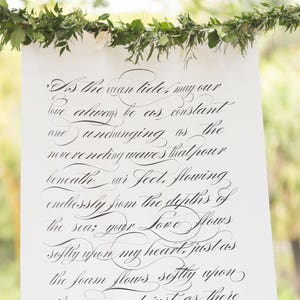 As the ocean tides, may our
love always be as constant
and unchanging as the
neverending waves that pour
beneath our feet, flowing
endlessly from the depths of
the sea; your Love flows
softly upon my heart, just as
the foam flows softly upon
just as their